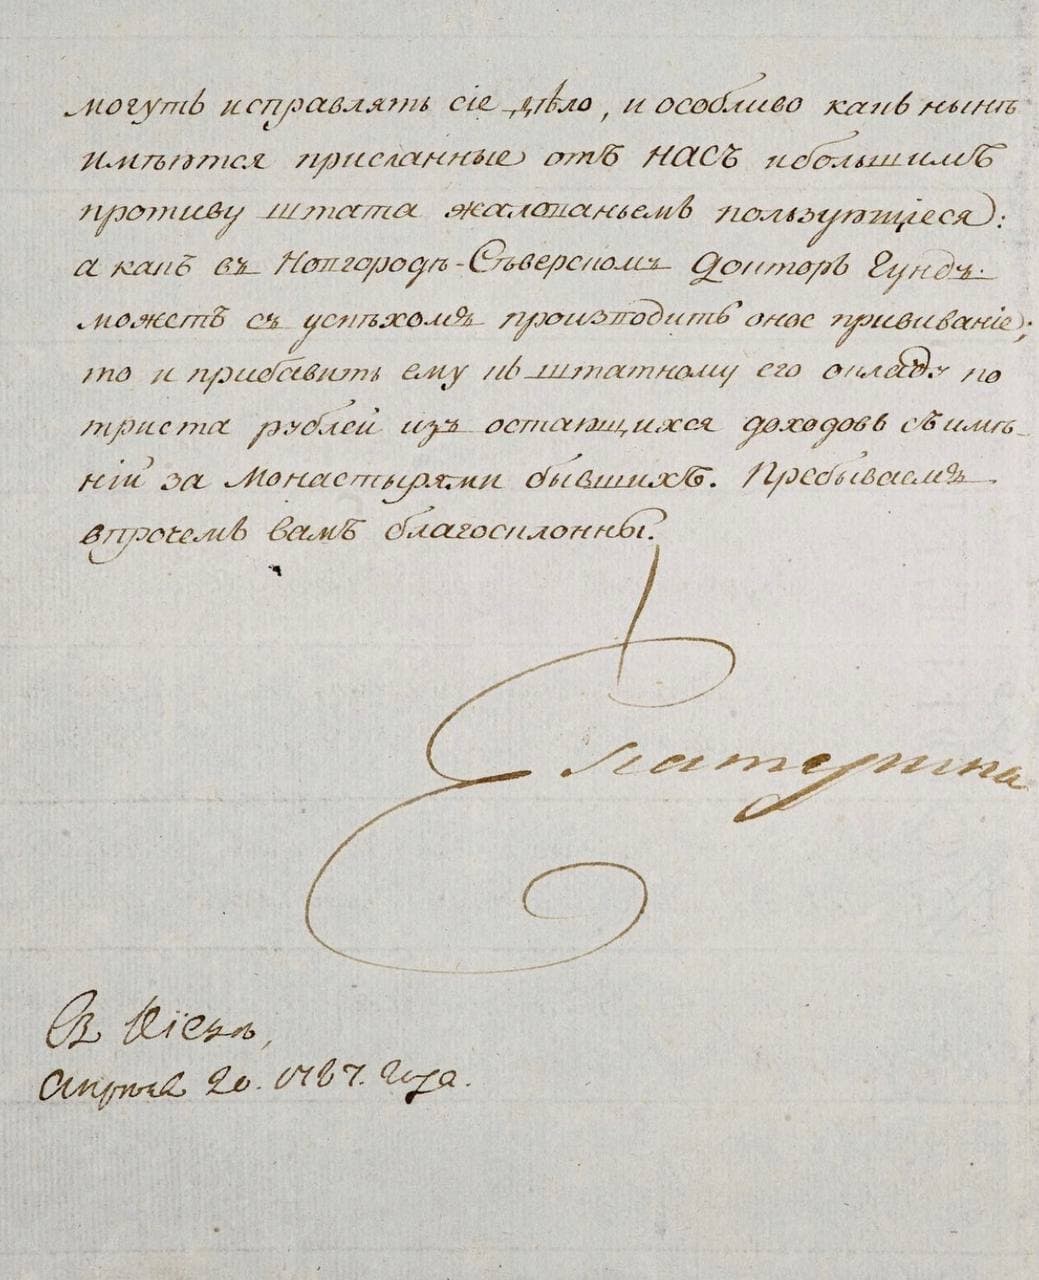 могутъ исправлять сіе дѣло, и особливо какъ нынѣ
имѣются присланные отъ НАСЪ и большимъ
противу штата жалованьемъ пользующіеся):
а какъ въ Новгородѣ-Сѣверскомъ Докторъ Гундъ
можетъ съ успѣхомъ производить оное прививаніе;
то и прибавить ему къ штатному его окладу по
триста рублей изъ остающихся доходовъ съ имѣ-
ній за монастырями бывшихъ. Пребываемъ
впрочемъ вамъ благосклонны.
Екатерина
Въ Кіевѣ,
Апрѣля 20. 1787. года.